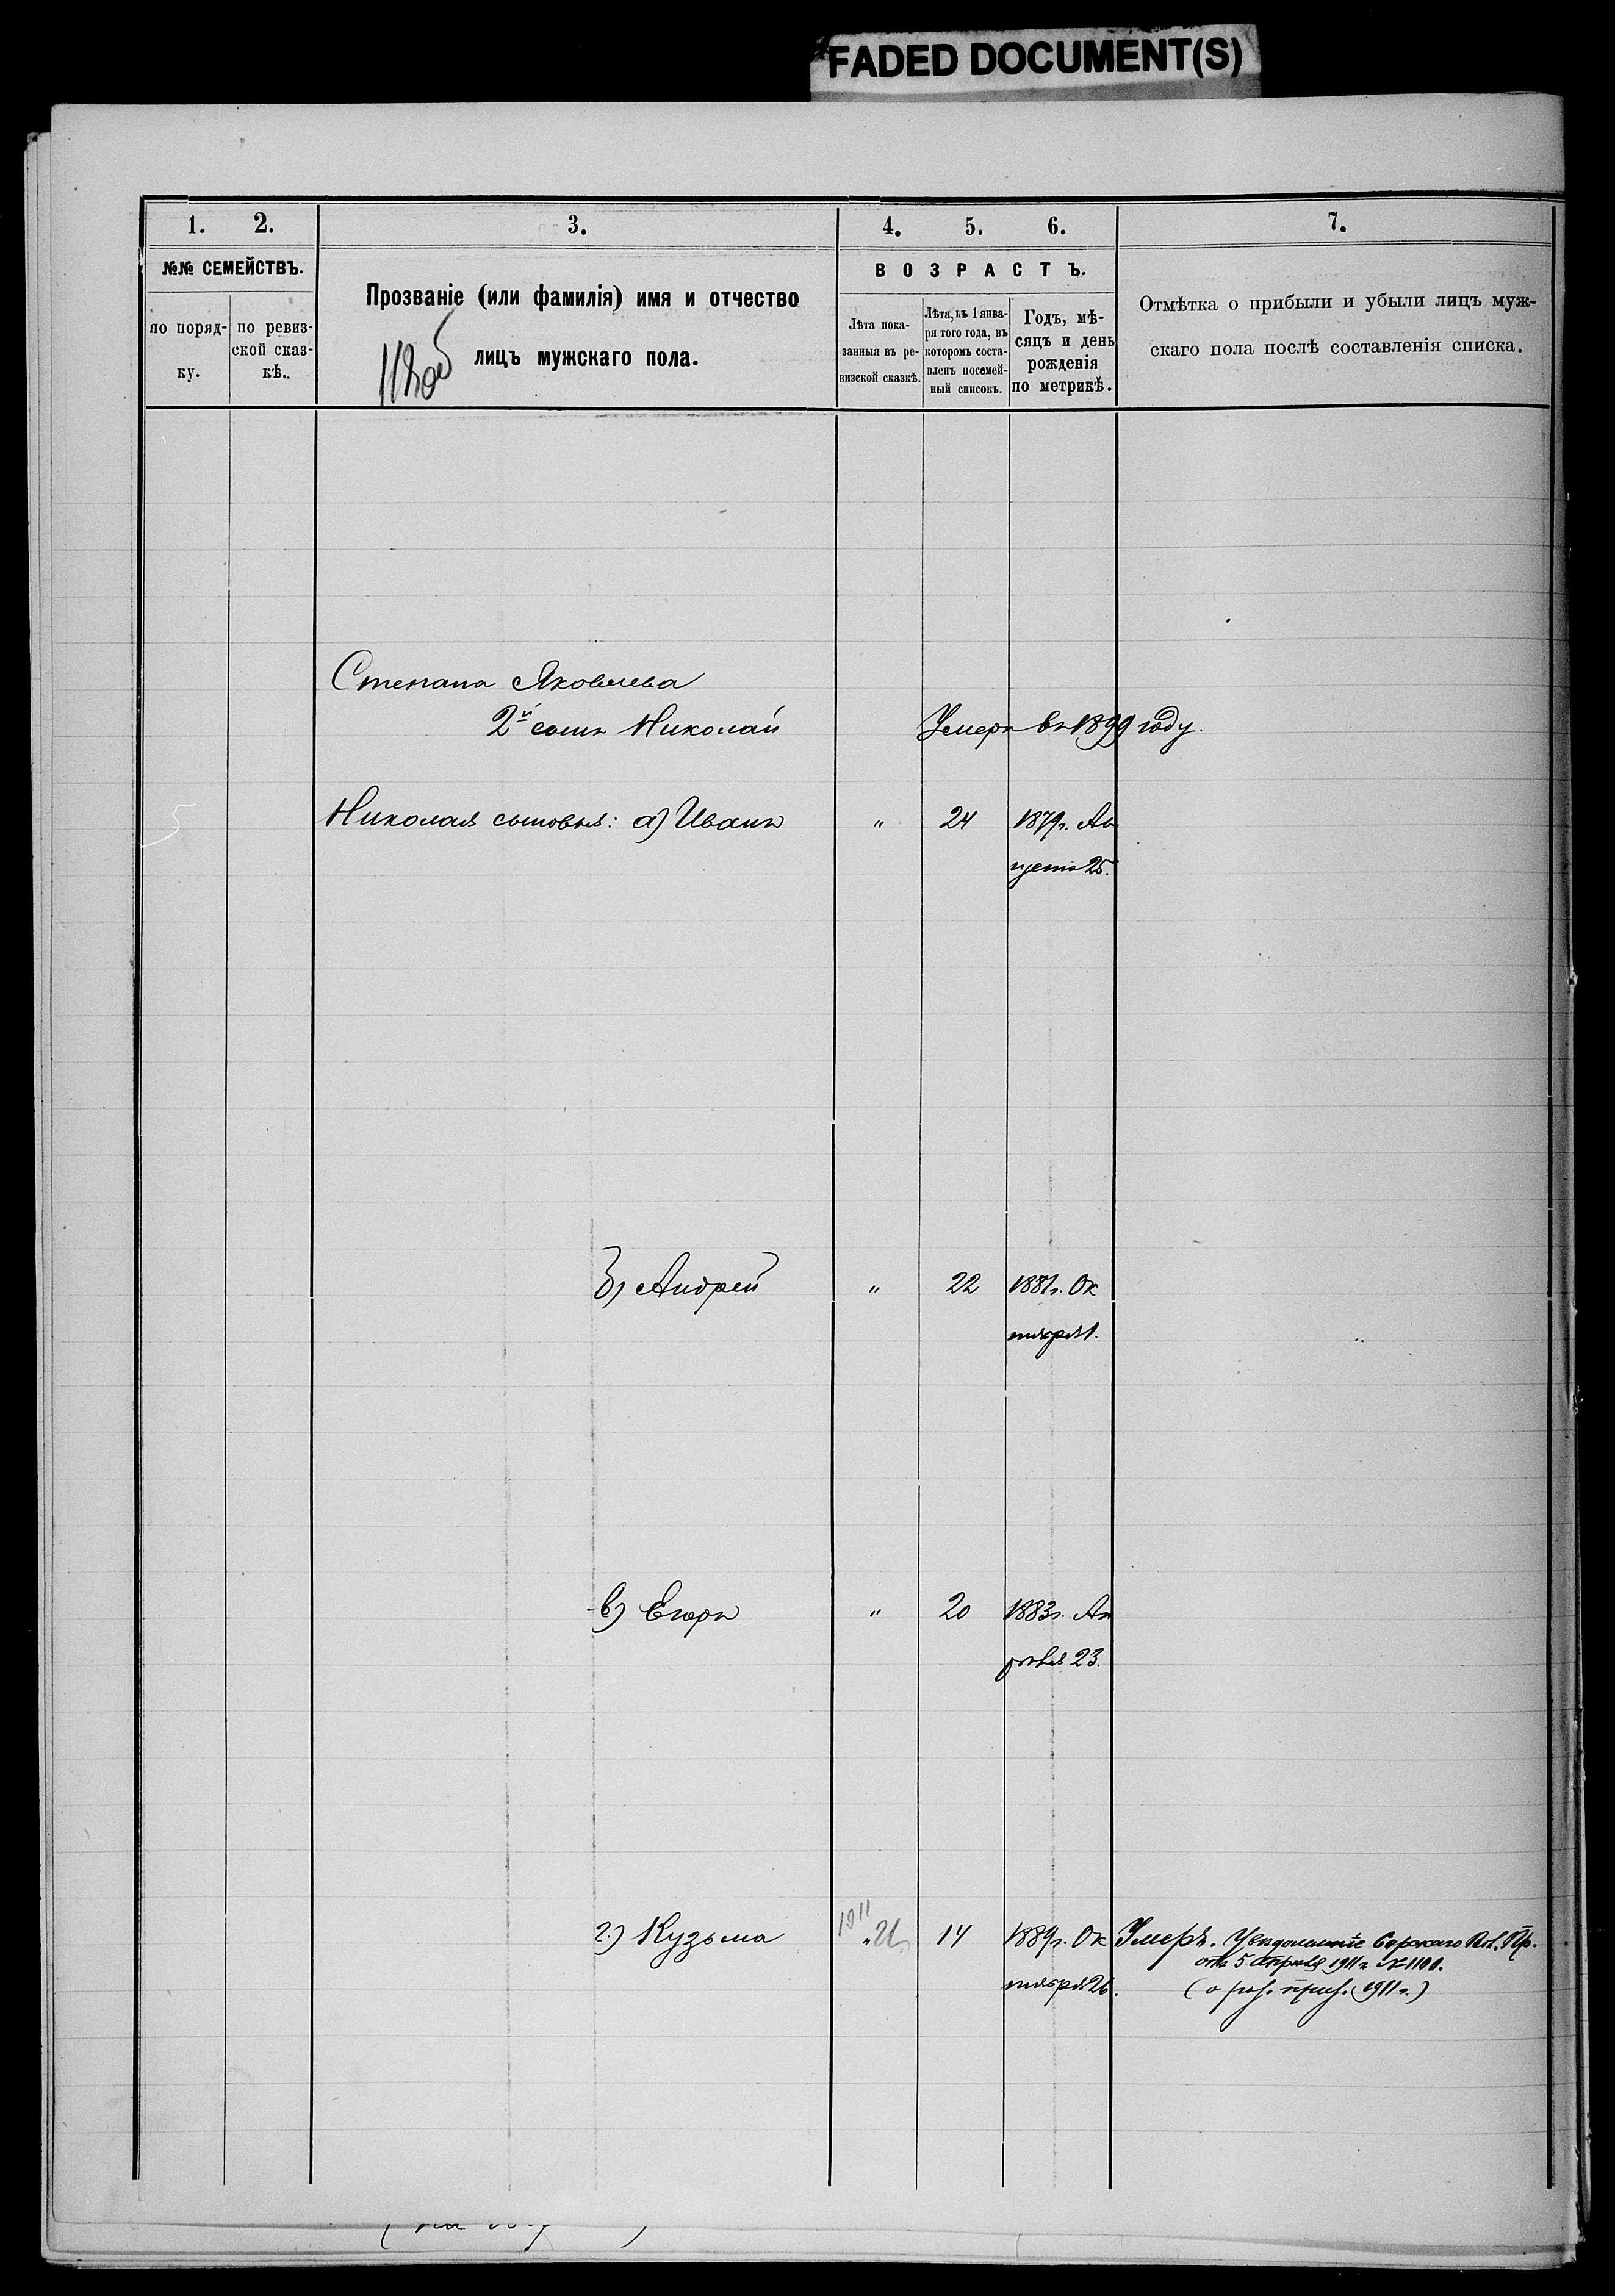 FADED DOCUMENT(S)
1. 2. 3. 4. 5. 6. 7.
№№ СЕМЕЙСТВЪ.
по поряд-
ку.
по ревиз-
ской сказ-
кѣ.
Прозваніе (или фамилія) имя и отчество
лицъ мужскаго пола.
ВОЗРАСТЪ.
Лѣта пока-
занныя въ ре-
визской сказкѣ.
Лѣта, къ 1 янва-
ря того года, въ
которомъ соста-
вленъ посемей-
ный списокъ.
Годъ, мѣ-
сяцъ и день
рожденія
по метрикѣ.
Отмѣтка о прибыли и убыли лицъ муж-
скаго пола послѣ составленія списка.
Степана Яковлева
2й сынъ Николай Умеръ въ 1899 году.
5 Николая сыновья: а) Иванъ " 24 1879г. Ав
густа 25.
б) Андрей " 22 1881г. Ок
тября 1.
в) Егоръ " 20 1883г. Ап
рѣля 23.
г) Кузьма 1911 " 21 14 1889г. Ок Умеръ. Увѣдомленіе Пр.
тября 26. отъ 5 Апрѣля 1911 г. № 1100.
1911 г.)